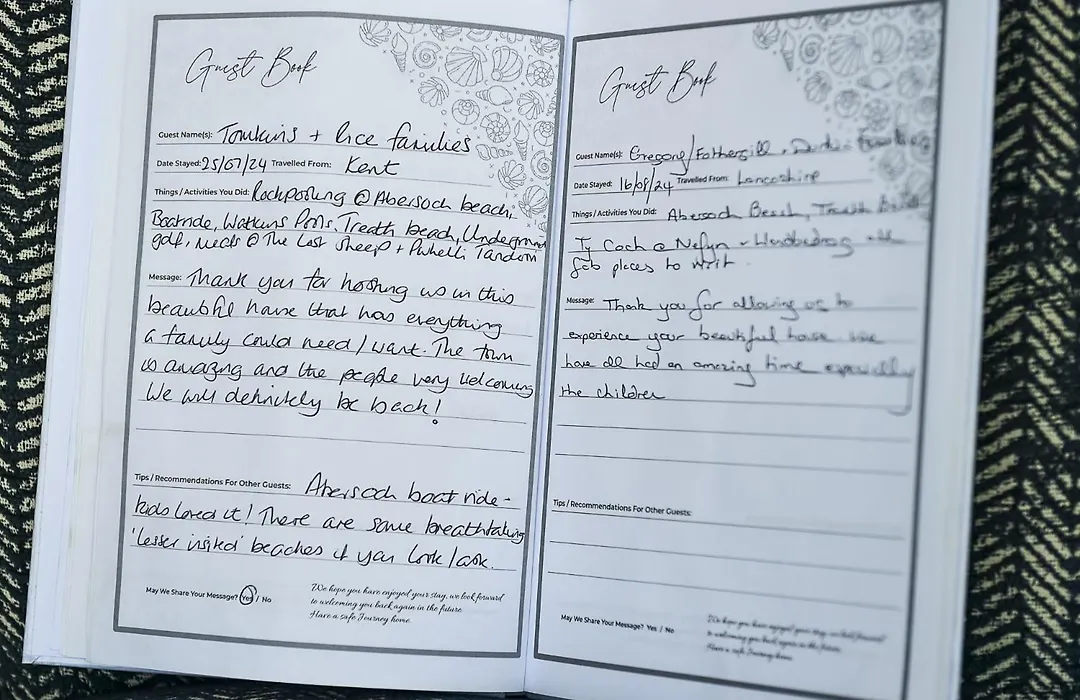 Guest Book
Guest Name(s): Tomkins + Rice families
Date Stayed: 25/07/24 Travelled From: Kent
Things / Activities You Did: Rockpooling @ Abersoch beach,
Boatride, Watkins Pools, Traeth beach, Underground
golf, meals @ The Lost Sheep + Pwhelli Tandoori
Message: Thank you for hosting us in this
beautiful home that has everything
a family could need / want. The town
is amazing and the people very welcoming
We will definitely be back!
Tips / Recommendations For Other Guests: Abersoch boat ride -
kids loved it! There are some breathtaking
'lesser visited' beaches if you look / ask.
May We Share Your Message? Yes / No
We hope you have enjoyed your stay, we look forward
to welcoming you back again in the future.
Have a safe Journey home.
Guest Book
Guest Name(s): Gregory / Fothergill + Families
Date Stayed: 16/08/24 Travelled From: Lancashire
Things / Activities You Did: Abersoch Beach, Traeth
Ty Coch @ Nefyn +
fab places to visit.
Message: Thank you for allowing us to
experience your beautiful house we
have all had an amazing time especially
the children
Tips / Recommendations For Other Guests:
May We Share Your Message? Yes / No
We hope you have enjoyed your stay, we look forward
to welcoming you back again in the future.
Have a safe Journey home.